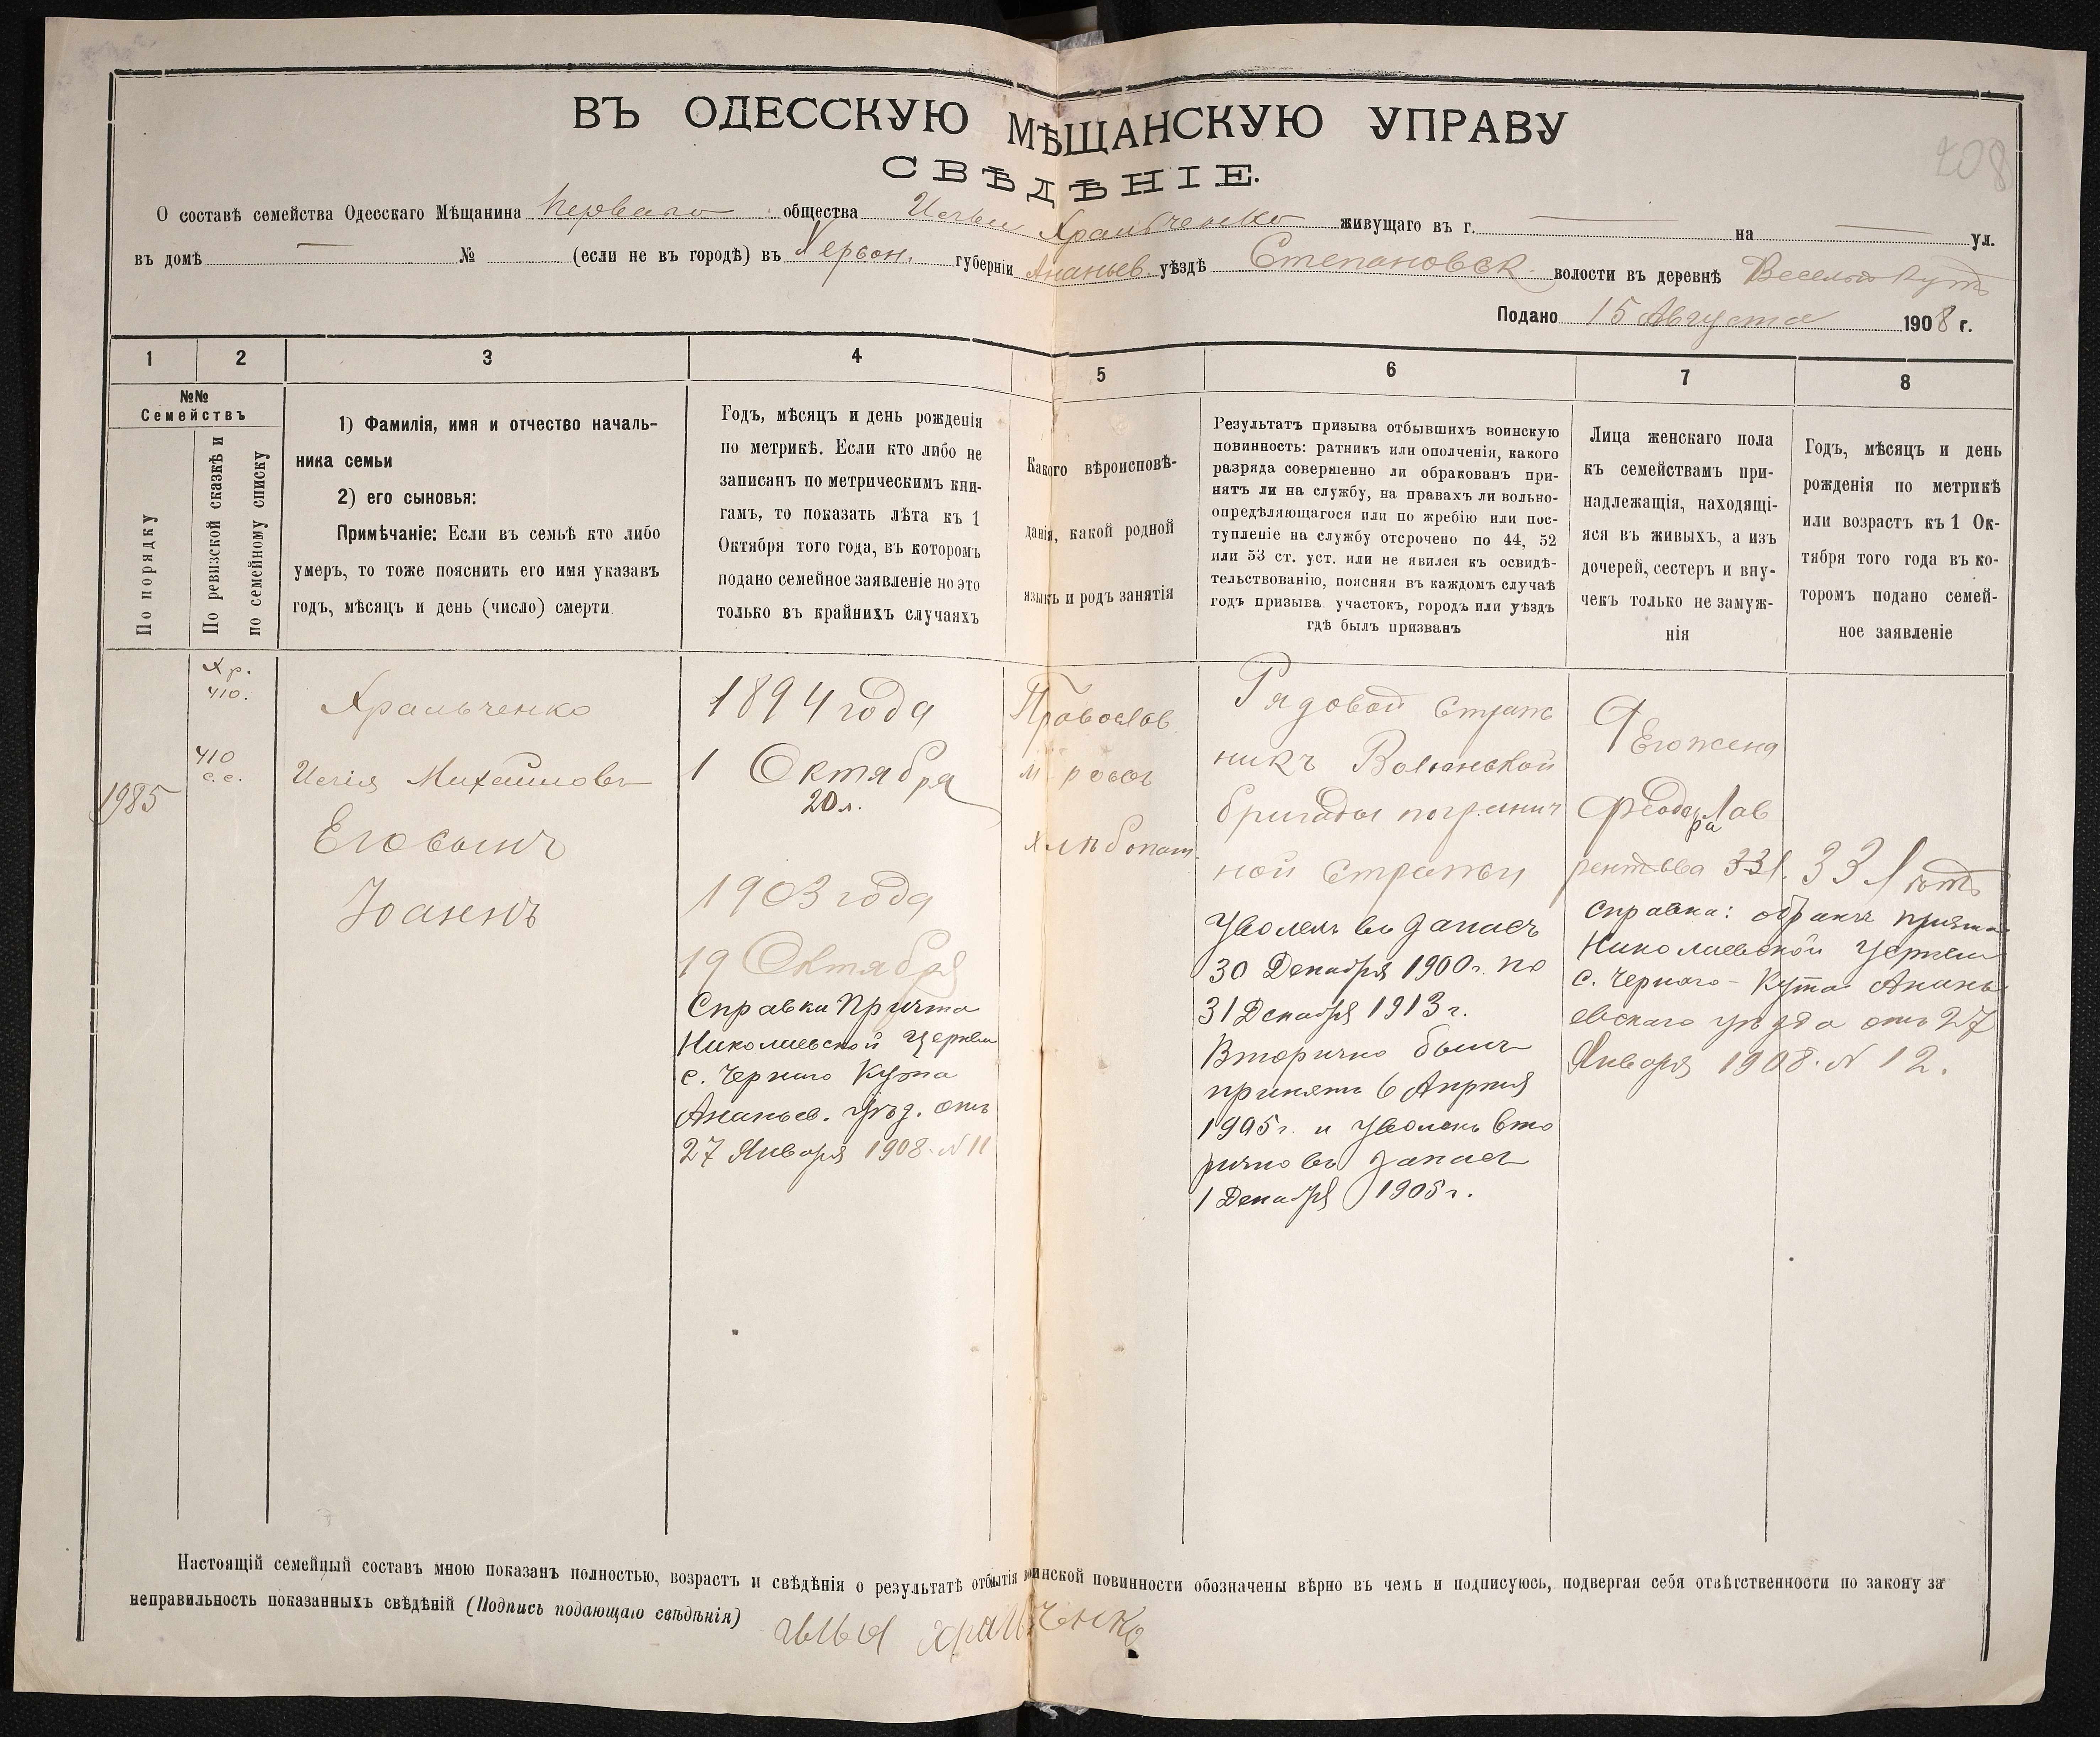 208
ВЪ ОДЕССКУЮ МѢЩАНСКУЮ УПРАВУ
СВѢДѢНІЕ.
О составѣ семейства Одесскаго Мѣщанина Перваго общества Ильи Храмьченко живущаго въ г. — на — ул.
въ домѣ — № (если не въ городѣ) въ Херсон. губерніи Ананьев. уѣздѣ Степановск. волости въ деревнѣ Веселый Кутъ
Подано 15 Августа 1908 г.
1 2 3 4 5 6 7 8
№№
Семействъ
По порядку
По ревизской сказкѣ и
по семейному списку
1) Фамилія, имя и отчество началь-
ника семьи
2) его сыновья:
Примѣчаніе: Если въ семьѣ кто либо
умеръ, то тоже пояснить его имя указавъ
годъ, мѣсяцъ и день (число) смерти.
Годъ, мѣсяцъ и день рожденія
по метрикѣ. Если кто либо не
записанъ по метрическимъ кни-
гамъ, то показать лѣта къ 1
Октября того года, въ которомъ
подано семейное заявленіе но это
только въ крайнихъ случаяхъ
Какого вѣроисповѣ-
данія, какой родной
языкъ и родъ занятія
Результатъ призыва отбывшихъ воинскую
повинность: ратникъ или ополченія, какого
разряда совершенно ли обракованъ при-
нятъ ли на службу, на правахъ ли вольно-
опредѣляющагося или по жребію или пос-
тупленіе на службу отсрочено по 44, 52
или 53 ст. уст. или не явился къ освидѣ-
тельствованію, поясняя въ каждомъ случаѣ
годъ призыва участокъ, городъ или уѣздъ
гдѣ былъ призванъ
Лица женскаго пола
къ семействамъ при-
надлежащія, находящі-
яся въ живыхъ, а изъ
дочерей, сестеръ и вну-
чекъ только не замуж-
нія
Годъ, мѣсяцъ и день
рожденія по метрикѣ
или возрастъ къ 1 Ок-
тября того года въ ко-
торомъ подано семей-
ное заявленіе
1985
Хр.
410.
410
с.с.
Храмьченко
Илія Михайловъ
Его сынъ
Іоаннъ
1894 года
1 Октября
20 л.
1903 года
19 Октября
Справка Причта
Николаевской Церкви
с. Чернаго Кута
Ананьев. уѣзд. отъ
27 Января 1908. N 11
Православ
хлѣбопаш.
Рядовой Страж
никъ Волынской
бригады погранич
ной Стражи
Уволенъ въ запасъ
30 Декабря 1900 г. по
31 Декабря 1913 г.
Вторично былъ
принятъ 6 Апрѣля
1905 г. и уволенъ вто
рично въ запасъ
1 Декабря 1905 г.
Его жена
Феодора Лав
рентьева 33 л. 33 лѣтъ
Справка: о бракѣ причта
Николаевской Церкви
с. Чернаго-Кута Анань
евскаго уѣзда отъ 27
Января 1908. N 12.
Настоящій семейный составъ мною показанъ полностью, возрастъ и свѣдѣнія о результатѣ отбытія воинской повинности обозначены вѣрно въ чемъ и подписуюсь, подвергая себя отвѣтственности по закону за
неправильность показанныхъ свѣдѣній (Подпись подающаго свѣдѣнія) илья храмьченко